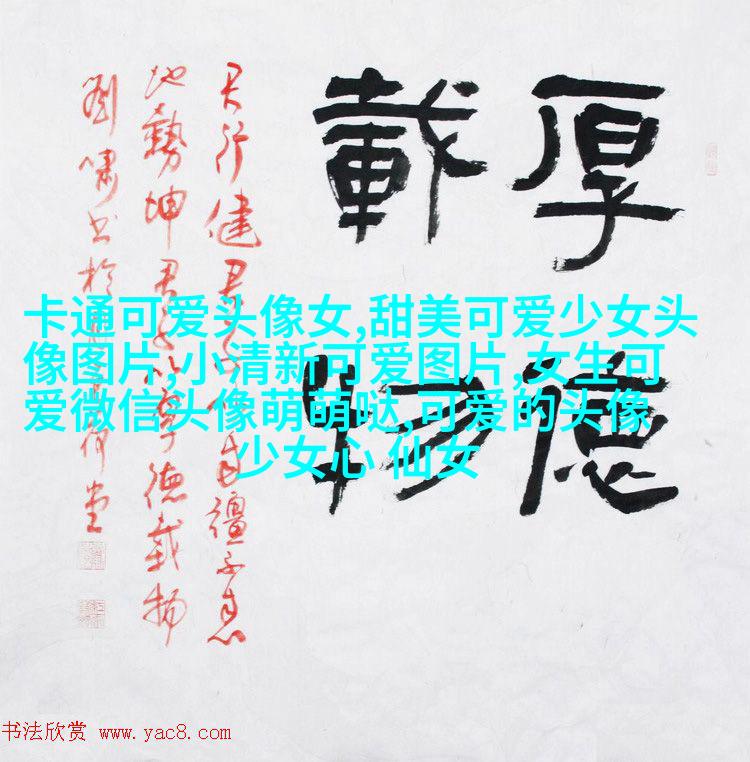 厚德
載物
天行健君子以自彊不息
地勢坤君子以厚德載物
劉嘯书於
堂
卡通可爱头像女,甜美可爱少女头
像图片,小清新可爱图片,女生可
爱微信头像萌萌哒,可爱的头像
少女心 仙女
书法欣赏 www.yac8.com